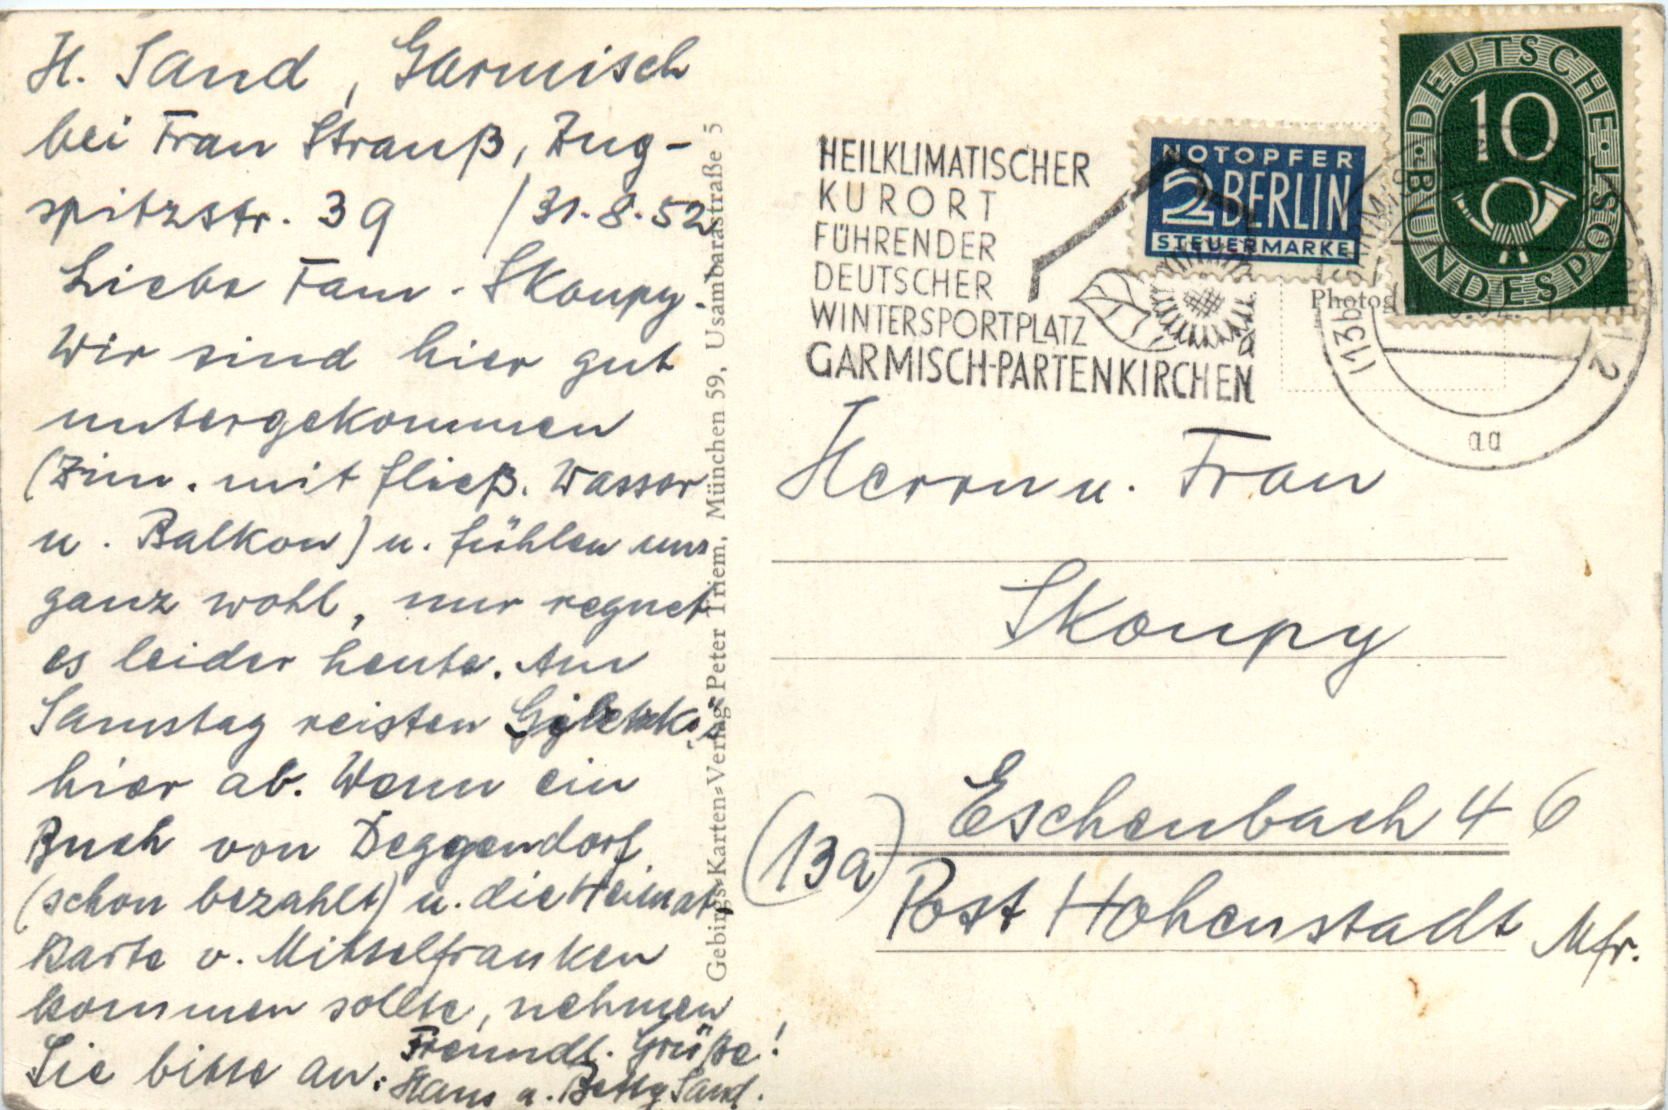 H. Sand, Garmisch
bei Frau Strauß, Zug-
spitzstr. 39 / 31.8.52
Liebe Fam. Skoupy.
Wir sind hier gut
untergekommen
(Zim. mit fließ. Wasser
u. Balkon) u. fühlen uns
ganz wohl, nur regnet
es leider heute. Am
Samstag reisten
hier ab. Wenn ein
Buch von Deggendorf
(schon bezahlt) u. die Heimat
Karte v. Mittelfranken
kommen sollte, nehmen
Sie bitte an.
Freundl. Grüße!
Hans u. Betty Sand.
Gebirgs-Karten-Verlag Peter Triem, München 59, Usambarastraße 5
HEILKLIMATISCHER
KURORT
FÜHRENDER
DEUTSCHER
WINTERSPORTPLATZ
GARMISCH-PARTENKIRCHEN
NOTOPFER
2 BERLIN
STEUERMARKE
DEUTSCHE BUNDESPOST
10
Photog
(13b)
2
aa
Herrn u. Frau
Skoupy
Eschenbach 46
(13a) Post Hohenstadt Mfr.